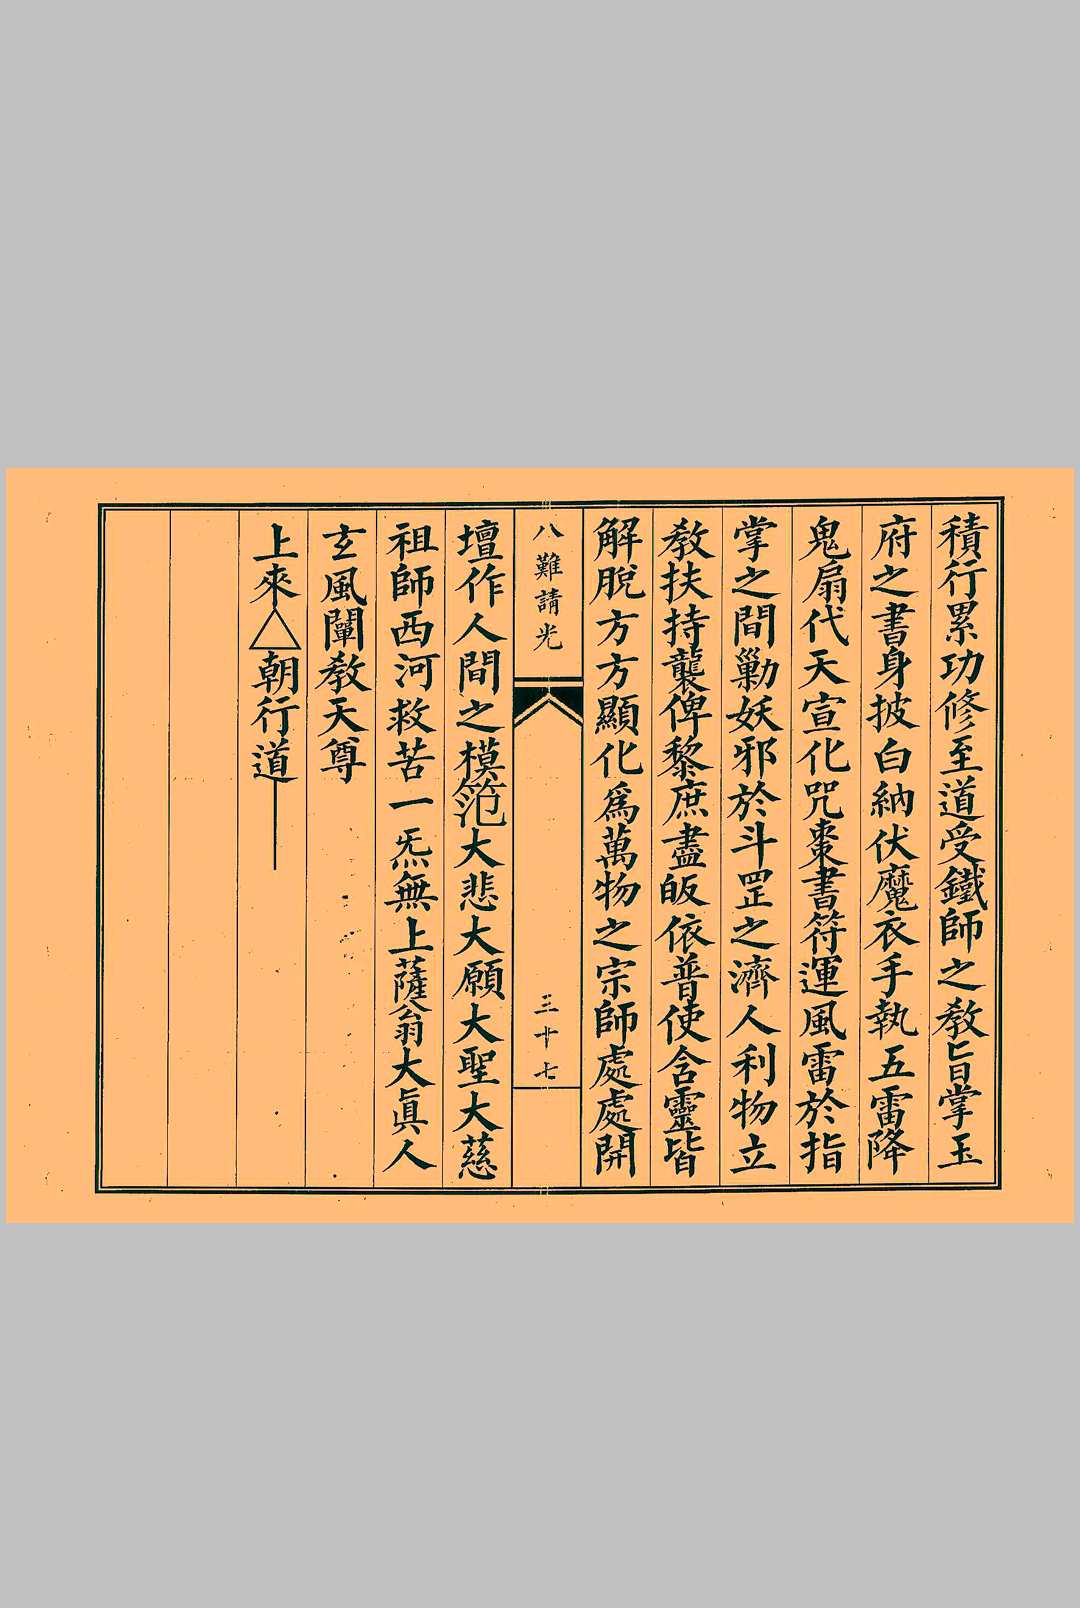 積行累功修至道受鐵師之教旨掌玉
府之書身披白納伏魔衣手執五雷降
鬼扇代天宣化咒棗書符運風雷於指
掌之間勦妖邪於斗罡之濟人利物立
教扶持襲俾黎庶盡皈依普使含靈皆
解脫方方顯化爲萬物之宗師處處開
八難請光
三十七
壇作人間之模范大悲大願大聖大慈
祖師西河救苦一炁無上薩翁大眞人
玄風闡教天尊
上來△朝行道